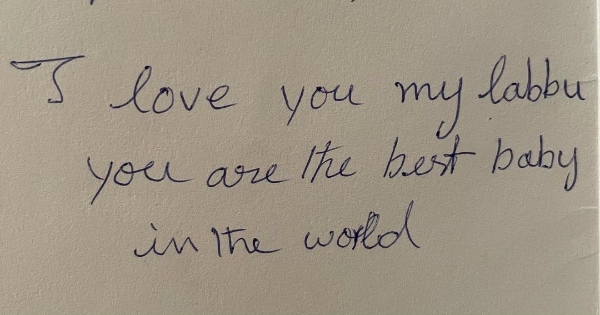 I love you my labbu
you are the best baby
in the world